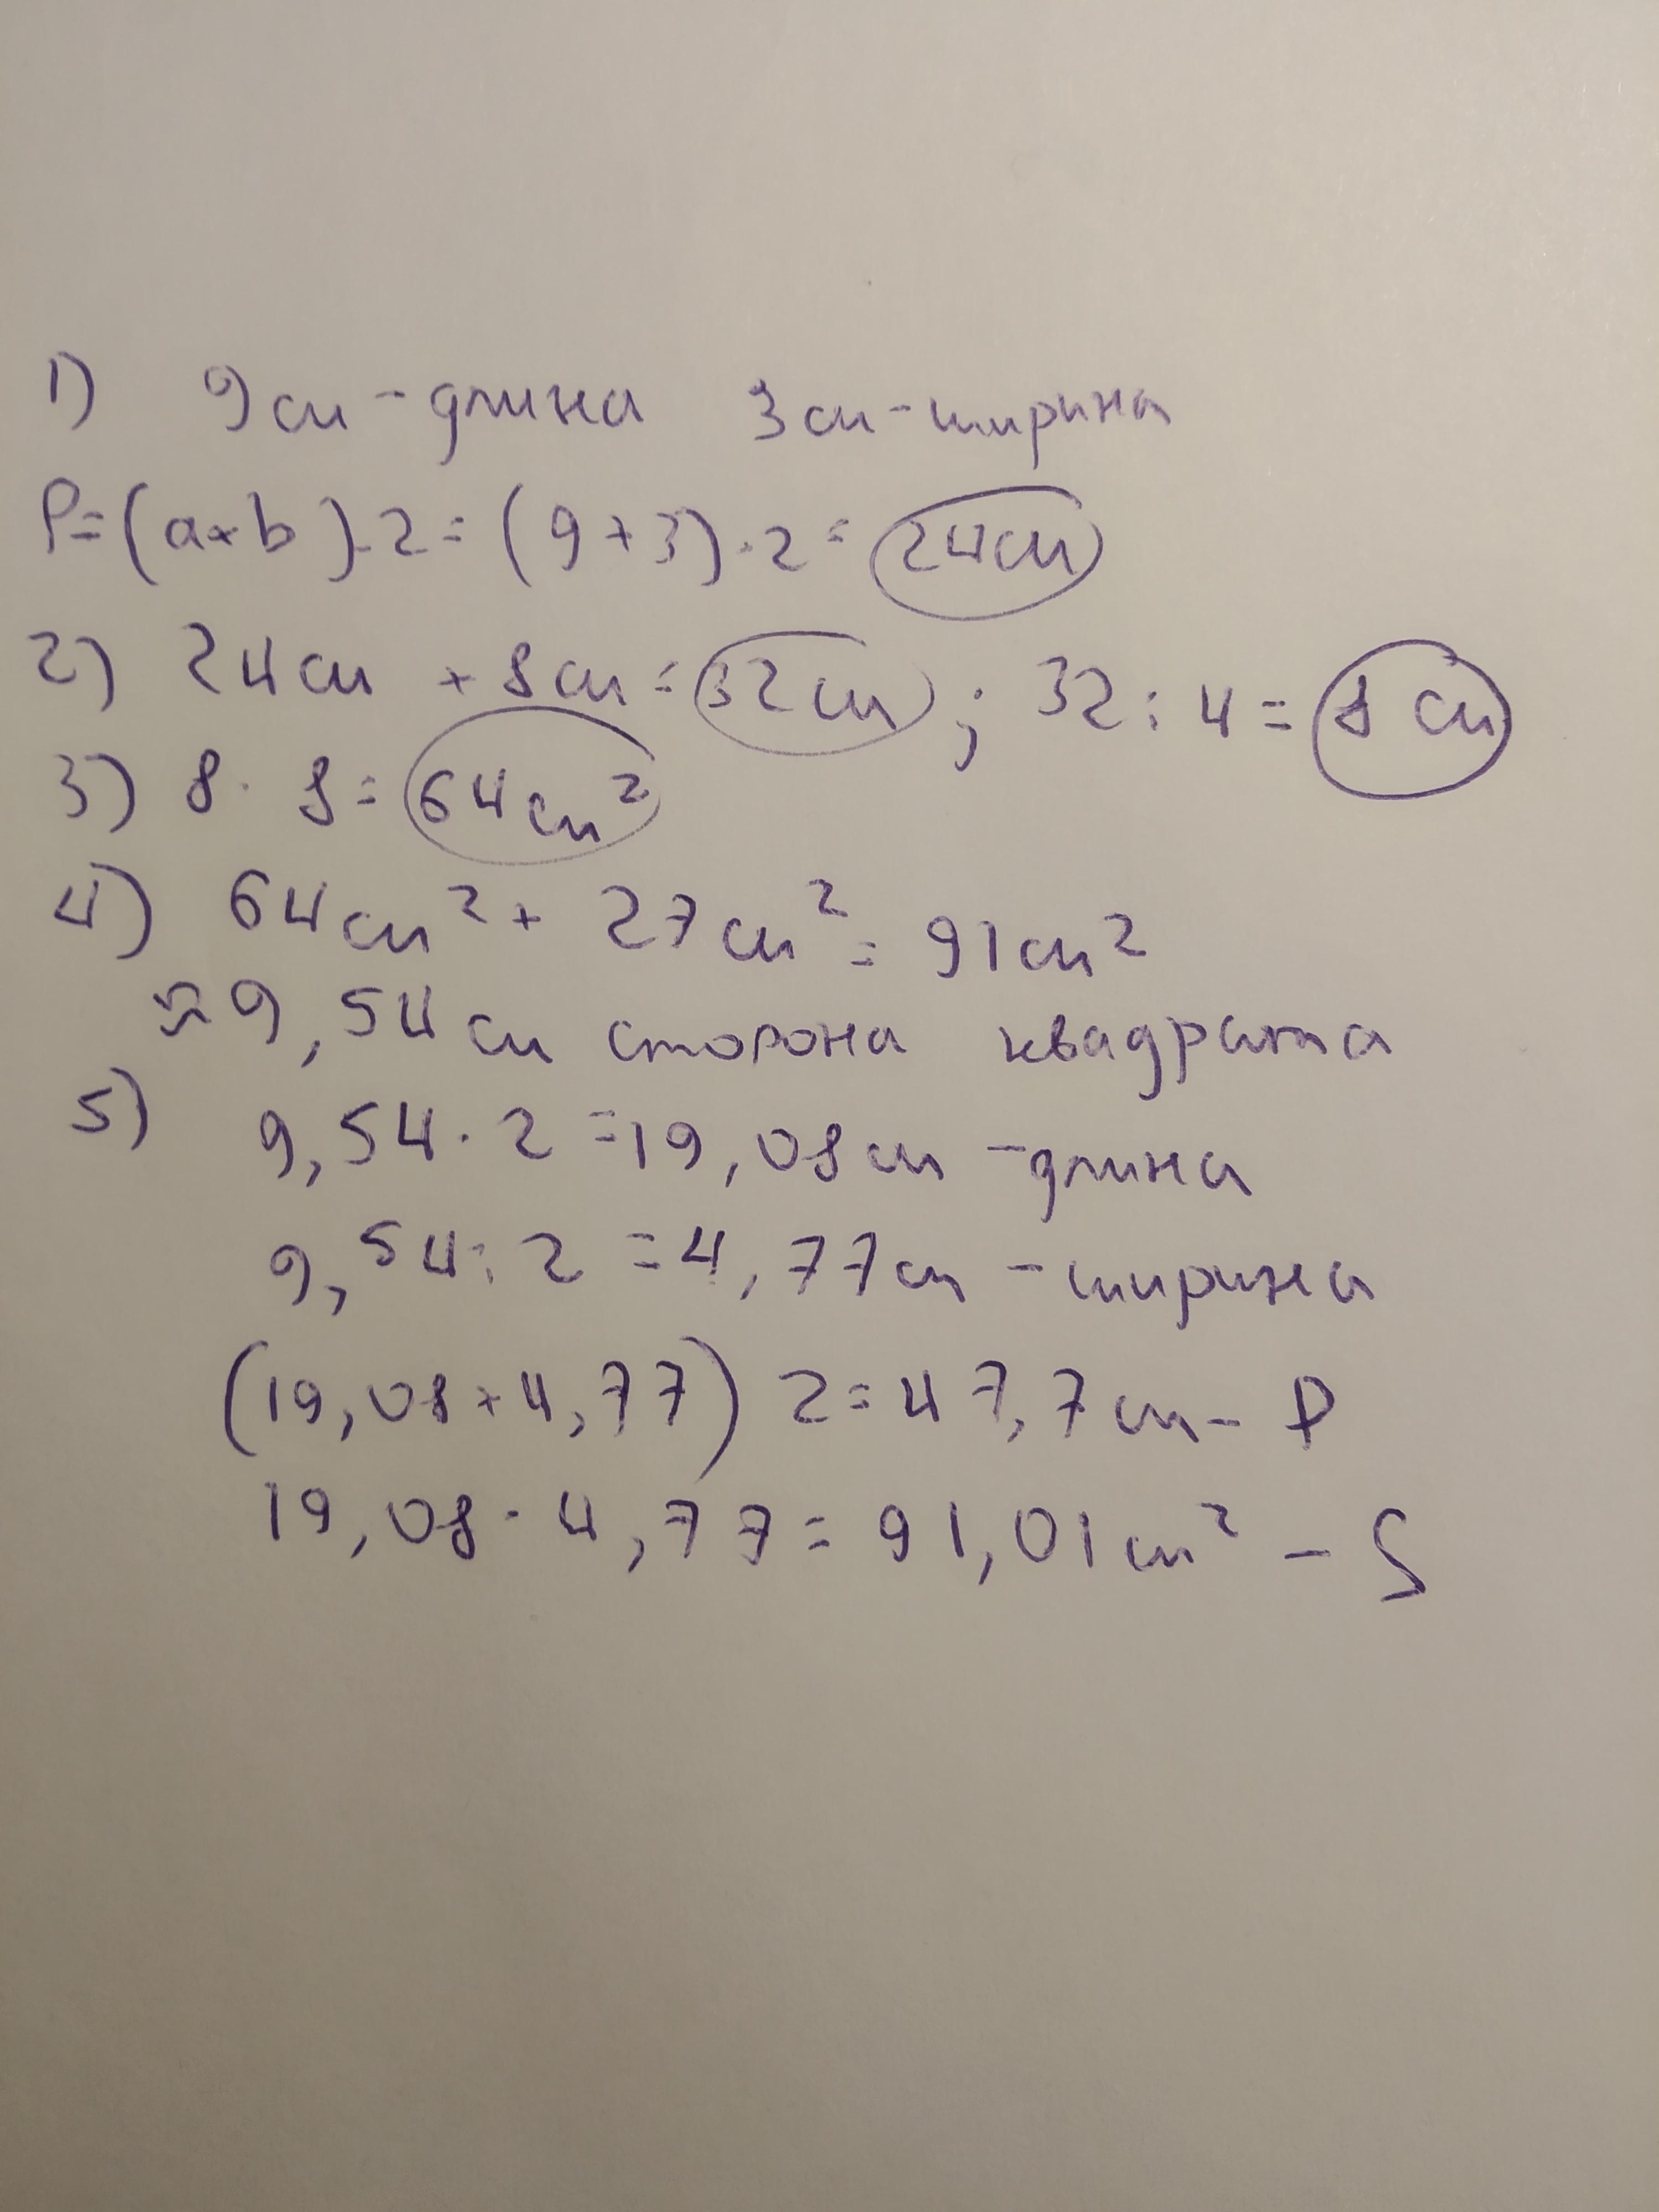 1) 9см - длина 3см - ширина
P=(a+b)·2=(9+3)·2=24см
2) 24см + 8см=32см; 32:4=8см
3) 8·8=64см²
4) 64см²+27см²=91см²
≈9,54см сторона квадрата
5) 9,54·2=19,08см - длина
9,54:2=4,77см - ширина
(19,08+4,77) 2=47,7см - P
19,08·4,77=91,01см² - S